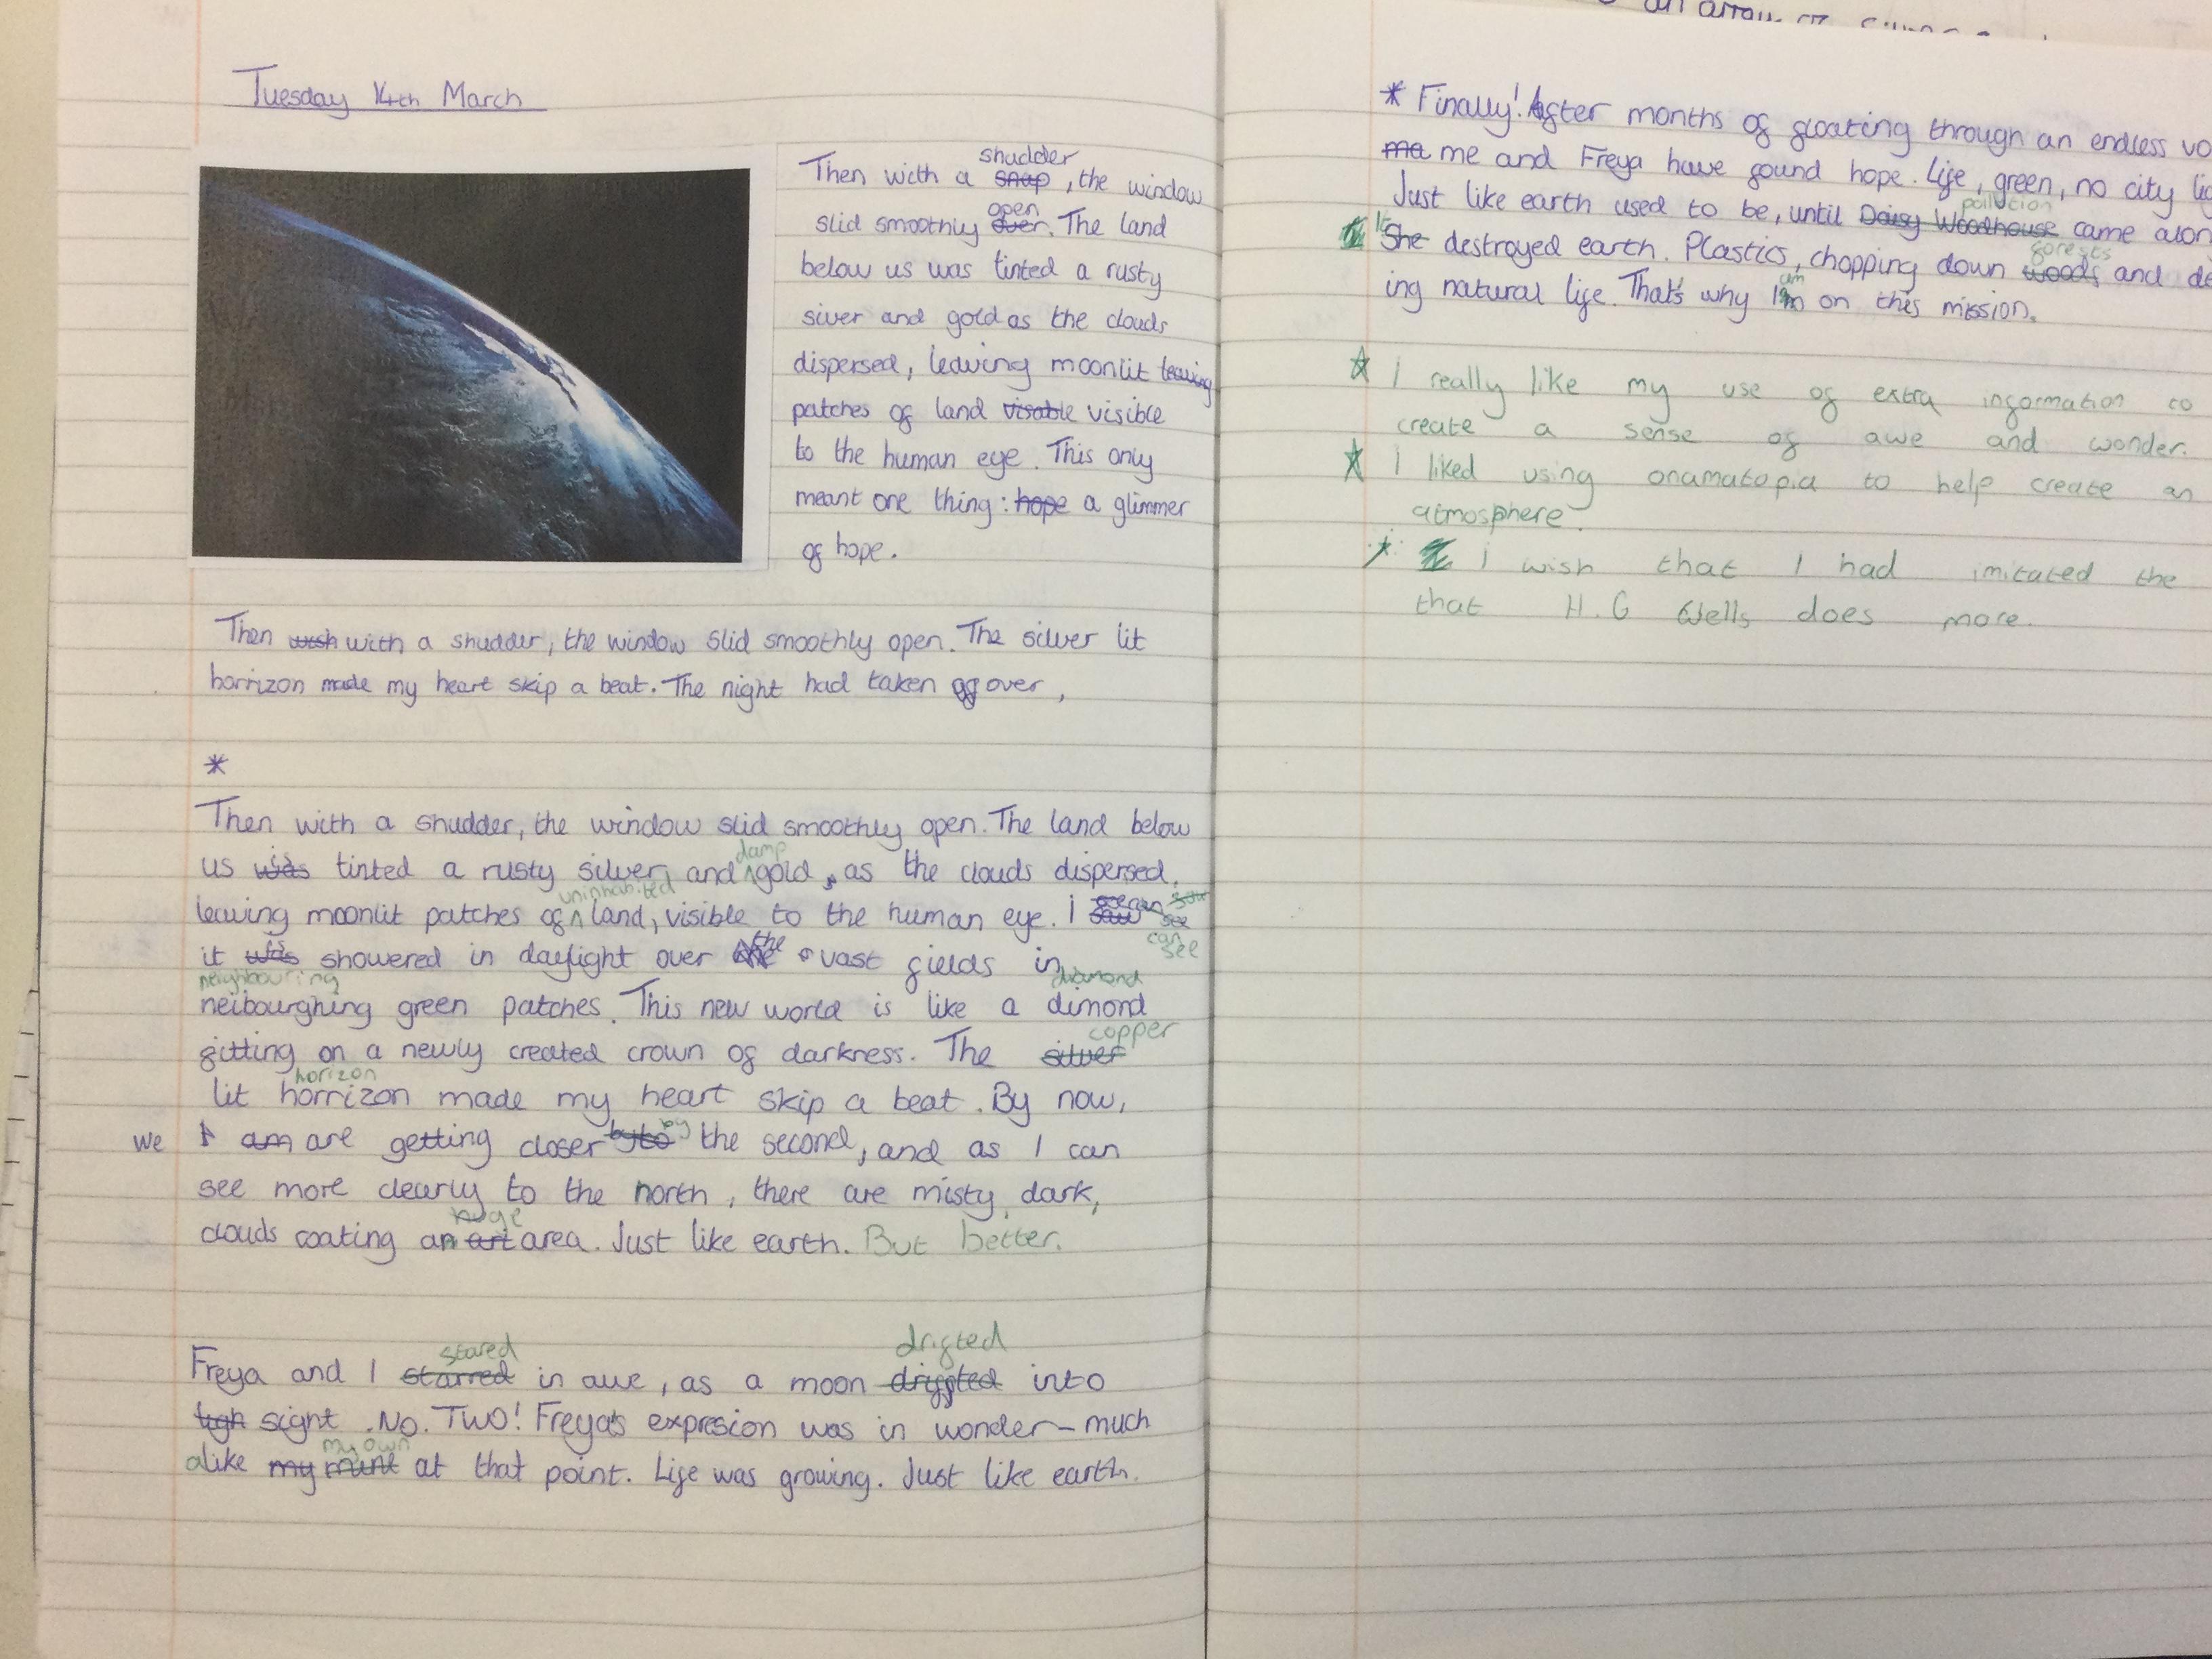 Tuesday 14th March
Then with a snap shudder, the window
slid smoothly over open. The land
below us was tinted a rusty
siver and gold as the clouds
dispersed, leaving moonlit leaving
patches of land visable visible
to the human eye. This only
meant one thing: hope a glimmer
of hope.
Then wish with a shudder, the window slid smoothly open. The silver lit
horrizon made my heart skip a beat. The night had taken of over,
*
Then with a shudder, the window slid smoothly open. The land below
us was is tinted a rusty silver, and damp gold, as the clouds dispersed.
leaving moonlit patches of uninhabited land, visible to the human eye. I saw can see
it was is showered in daylight over the vast fields in
neighbouring
neibourghing green patches. This new world is like a dimond diamond
fitting on a newly created crown of darkness. The silver copper
horizon
lit horrizon made my heart skip a beat. By now,
we I am are getting closer by to by the second, and as I can
see more clearly to the north, there are misty, dark,
clouds coating an huge area. Just like earth. But better.
Freya and I starred stared in awe, as a moon driffted drifted into
sight. No. TWO! Freya's expresion was in wonder - much
alike my mint my own at that point. Life was growing. Just like earth.
an array of
* Finally! After months of floating through an endless
ma me and Freya have found hope. Life, green, no city
Just like earth used to be, until Daisy Woodhouse pollution came
She It destroyed earth. Plastics, chopping down woods forests and
ing natural life. That's why I'm am on this mission.
I really like my use of extra information to
create a sense of awe and wonder.
I liked using onamatopia to help create an
atmosphere.
I wish that I had imitated the
that H.G Wells does more.